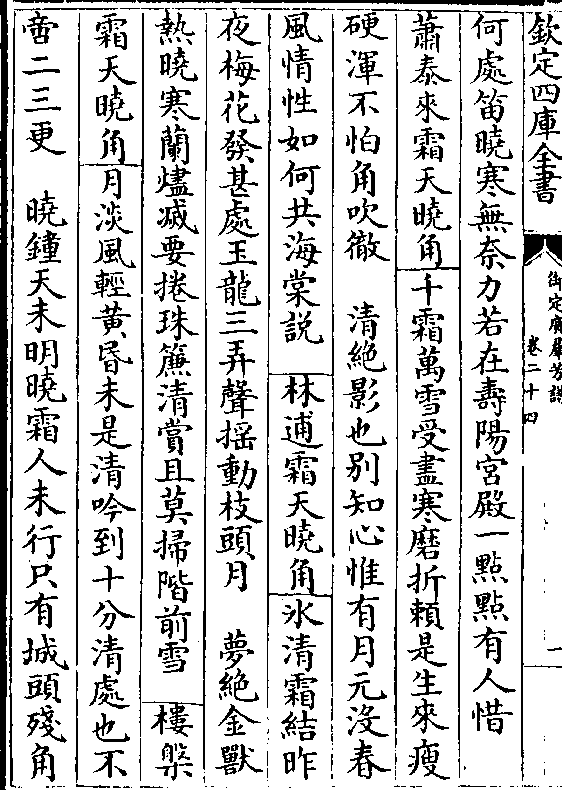 欽定四庫全書
御定廣羣芳譜
卷二十四
一
何處笛曉寒無奈力若在壽陽宮殿一點點有人惜
蕭泰來霜天曉角千霜萬雪受盡寒磨折賴是生來瘦
硬渾不怕角吹徹　清絶影也别知心惟有月元沒春
風情性如何共海棠説　林逋霜天曉角氷清霜結昨
夜梅花發甚處玉龍三弄聲揺動枝頭月　夢絶金獸
熱曉寒蘭燼滅要捲珠簾清賞且莫掃階前雪　樓槃
霜天曉角月淡風輕黄昏未是清吟到十分清處也不
啻二三更　曉鐘天未明曉霜人未行只有城頭殘角